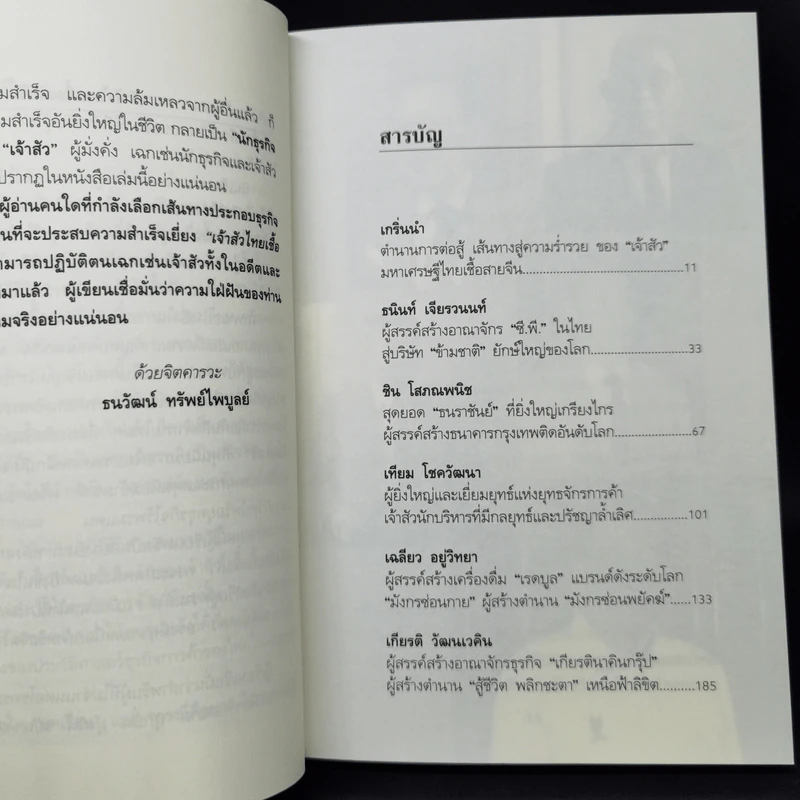 มสำเร็จ และความล้มเหลวจากผู้อื่นแล้ว ก็
มสำเร็จอันยิ่งใหญ่ในชีวิต กลายเป็น “นักธุรกิจ
“เจ้าสัว” ผู้มั่งคั่ง เฉกเช่นนักธุรกิจและเจ้าสัว
ปรากฏในหนังสือเล่มนี้อย่างแน่นอน
ผู้อ่านคนใดที่กำลังเลือกเส้นทางประกอบธุรกิจ
นที่จะประสบความสำเร็จเยี่ยง “เจ้าสัวไทยเชื้อ
ามารถปฏิบัติตนเฉกเช่นเจ้าสัวทั้งในอดีตและ
มาแล้ว ผู้เขียนเชื่อมั่นว่าความใฝ่ฝันของท่าน
มจริงอย่างแน่นอน
ด้วยจิตคารวะ
ธนวัฒน์ ทรัพย์ไพบูลย์
สารบัญ
เกริ่นนำ
ตำนานการต่อสู้ เส้นทางสู่ความร่ำรวย ของ “เจ้าสัว”
มหาเศรษฐีไทยเชื้อสายจีน..............................11
ธนินท์ เจียรวนนท์
ผู้สรรค์สร้างอาณาจักร “ซี.พี.” ในไทย
สู่บริษัท “ข้ามชาติ” ยักษ์ใหญ่ของโลก....................33
ชิน โสภณพนิช
สุดยอด “ธนราชันย์” ที่ยิ่งใหญ่เกรียงไกร
ผู้สรรค์สร้างธนาคารกรุงเทพติดอันดับโลก...............67
เทียม โชควัฒนา
ผู้ยิ่งใหญ่และเยี่ยมยุทธ์แห่งยุทธจักรการค้า
เจ้าสัวนักบริหารที่มีกลยุทธ์และปรัชญาล้ำเลิศ...............101
เฉลียว อยู่วิทยา
ผู้สรรค์สร้างเครื่องดื่ม “เรดบูล” แบรนด์ดังระดับโลก
“มังกรซ่อนกาย” ผู้สร้างตำนาน “มังกรซ่อนพยัคฆ์”......133
เกียรติ วัฒนเวคิน
ผู้สรรค์สร้างอาณาจักรธุรกิจ “เกียรตินาคินกรุ๊ป”
ผู้สร้างตำนาน “สู้ชีวิต พลิกชะตา” เหนือฟ้าลิขิต..........185